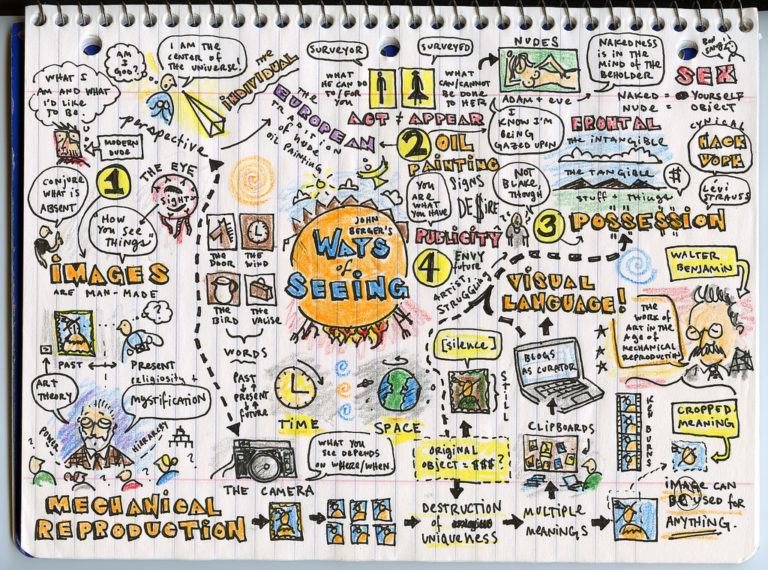 AM
I
GOD?
I AM THE
CENTER OF
THE UNIVERSE!
WHAT I
AM AND WHAT
I'D LIKE TO
BE.
MODERN
DUDE
perspective
THE INDIVIDUAL
THE
EUROPEAN
TRADITION
OF NUDE
OIL PAINTING
1
THE EYE
SIGHT
CONJURE
WHAT IS
ABSENT
"HOW
YOU SEE
THINGS"
IMAGES
ARE MAN-MADE
?
PAST
PRESENT
religiosity +
MYSTIFICATION
ART
THEORY
POWER
HIERARCHY
SURVEYOR
SURVEYED
WHAT
HE CAN DO
TO/FOR
YOU
WHAT
CAN/CANNOT
BE DONE
TO HER
ACT + APPEAR
NUDES
ADAM + eve
I
KNOW I'M
BEING
GAZED UPON
NAKEDNESS
IS IN THE
MIND OF THE
BEHOLDER
SEX
NAKED = YOURSELF
NUDE = OBJECT
2
OIL
PAINTING
SIGNS
DE$IRE
YOU
ARE
WHAT
YOU HAVE
FRONTAL
THE INTANGIBLE
THE TANGIBLE
STUFF + THINGS
$
CYNICAL
HACK
WORK
LÉVI
STRAUSS
NOT
BLAKE,
THOUGH
3
POSSESSION
PUBLICITY
4
ENVY
future
ARTIST,
STRUGGLING
JOHN
BERGER'S
WAYS
of
SEEING
THE
DOOR
THE
WIND
THE
BIRD
THE
VALISE
WORDS
PAST
PRESENT
FUTURE
TIME
SPACE
WHAT YOU
SEE DEPENDS
ON WHERE/WHEN.
THE CAMERA
VISUAL
LANGUAGE!
WALTER
BENJAMIN
THE
WORK OF
ART IN THE
AGE OF
MECHANICAL
REPRODUCTION
[silence]
STILL
BLOGS
AS CURATOR
CLIPBOARDS
KEN BURNS
CROPPED
MEANING
ORIGINAL
OBJECT = $$$ ?
IMAGE CAN
BE USED FOR
ANYTHING.
MECHANICAL
REPRODUCTION
DESTRUCTION
OF
UNIQUENESS
MULTIPLE
MEANINGS